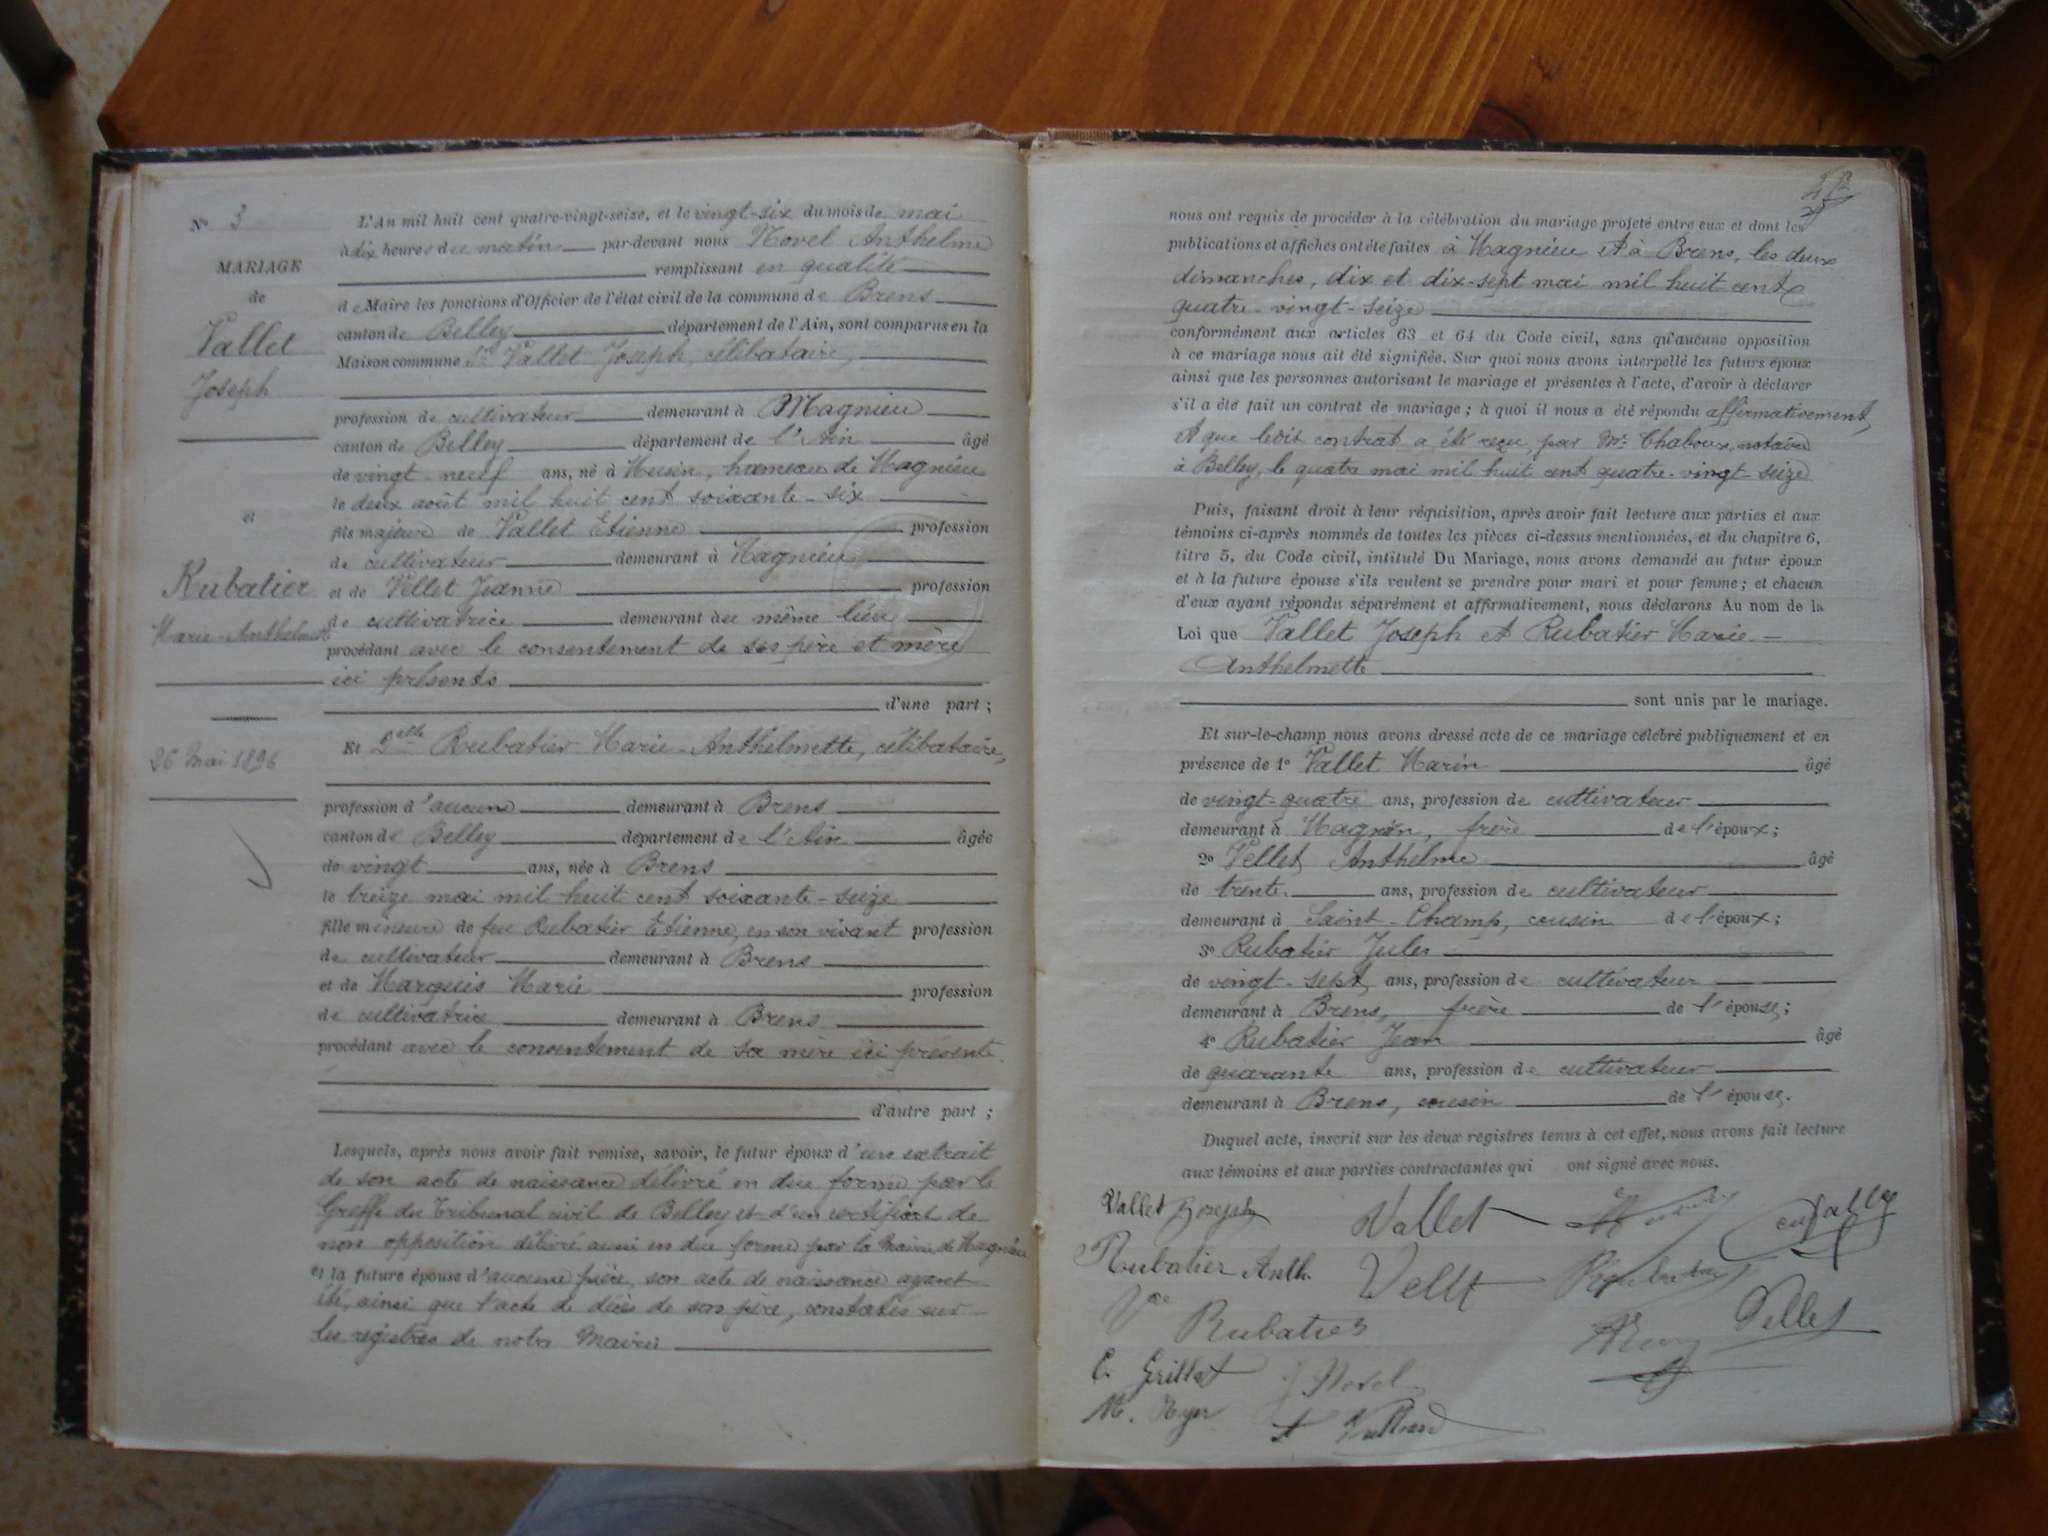 N° 3
MARIAGE
de
Vallet
Joseph
et
Rubatier
Marie-Anthelmette
26 Mai 1896
L'An mil huit cent quatre-vingt-seize, et le vingt-six du mois de mai
à dix heures du matin par-devant nous Novel Anthelme
remplissant en qualité
de Maire les fonctions d'Officier de l'état civil de la commune de Brens
canton de Belley département de l'Ain, sont comparus en la
Maison commune Sr Vallet Joseph, célibataire,
profession de cultivateur demeurant à Magnieu
canton de Belley département de l'Ain âgé
de vingt-neuf ans, né à Musin, hameau de Magnieu
le deux août mil huit cent soixante-six
fils majeur de Vallet Etienne profession
de cultivateur demeurant à Magnieu
et de Vellet Jeanne profession
de cultivatrice demeurant au même lieu
procédant avec le consentement de ses père et mère
ici présents
d'une part ;
Et Delle Rubatier Marie-Anthelmette, célibataire,
profession d'aucune demeurant à Brens
canton de Belley département de l'Ain âgée
de vingt ans, née à Brens
le treize mai mil huit cent soixante-seize
fille mineure de feu Rubatier Etienne, en son vivant profession
de cultivateur demeurant à Brens
et de Marquis Marie profession
de cultivatrice demeurant à Brens
procédant avec le consentement de sa mère ici présente
d'autre part ;
Lesquels, après nous avoir fait remise, savoir, le futur époux d'un extrait
de son acte de naissance délivré en due forme par le
Greffe du Tribunal civil de Belley et d'un certificat de
non opposition délivré aussi en due forme par la Mairie de Magnieu
et la future épouse d'aucune pièce, son acte de naissance ayant
été, ainsi que l'acte de décès de son père, constatés sur
les registres de notre Mairie
nous ont requis de procéder à la célébration du mariage projeté entre eux et dont les
publications et affiches ont été faites à Magnieu et à Brens, les deux
dimanches, dix et dix-sept mai mil huit cent
quatre-vingt-seize
conformément aux articles 63 et 64 du Code civil, sans qu'aucune opposition
à ce mariage nous ait été signifiée. Sur quoi nous avons interpellé les futurs époux
ainsi que les personnes autorisant le mariage et présentes à l'acte, d'avoir à déclarer
s'il a été fait un contrat de mariage ; à quoi il nous a été répondu affirmativement,
et que ledit contrat a été reçu par Me Chaboux, notaire
à Belley, le quatre mai mil huit cent quatre-vingt seize
Puis, faisant droit à leur réquisition, après avoir fait lecture aux parties et aux
témoins ci-après nommés de toutes les pièces ci-dessus mentionnées, et du chapitre 6,
titre 5, du Code civil, intitulé Du Mariage, nous avons demandé au futur époux
et à la future épouse s'ils veulent se prendre pour mari et pour femme ; et chacun
d'eux ayant répondu séparément et affirmativement, nous déclarons Au nom de la
Loi que Vallet Joseph et Rubatier Marie-
Anthelmette
sont unis par le mariage.
Et sur-le-champ nous avons dressé acte de ce mariage célébré publiquement et en
présence de 1° Vallet Marin âgé
de vingt-quatre ans, profession de cultivateur
demeurant à Magnieu, frère de l'époux ;
2° Vellet Anthelme âgé
de trente ans, profession de cultivateur
demeurant à Saint-Champ, cousin de l'époux ;
3° Rubatier Jules
de vingt-sept ans, profession de cultivateur
demeurant à Brens, frère de l'épouse ;
4° Rubatier Jean âgé
de quarante ans, profession de cultivateur
demeurant à Brens, cousin de l'épouse.
Duquel acte, inscrit sur les deux registres tenus à cet effet, nous avons fait lecture
aux témoins et aux parties contractantes qui ont signé avec nous.
Vallet Joseph Vallet
Rubatier Anth. Vellet
Vve Rubatier Vellet
C. Grillot J Novel